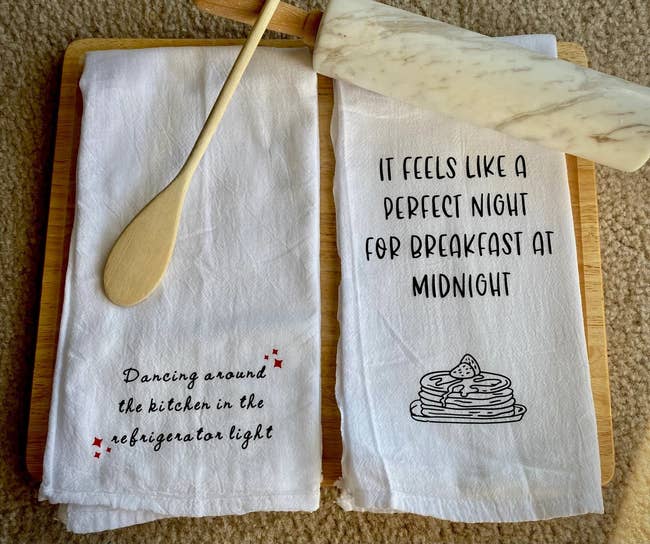 Dancing around
the kitchen in the
refrigerator light
IT FEELS LIKE A
PERFECT NIGHT
FOR BREAKFAST AT
MIDNIGHT